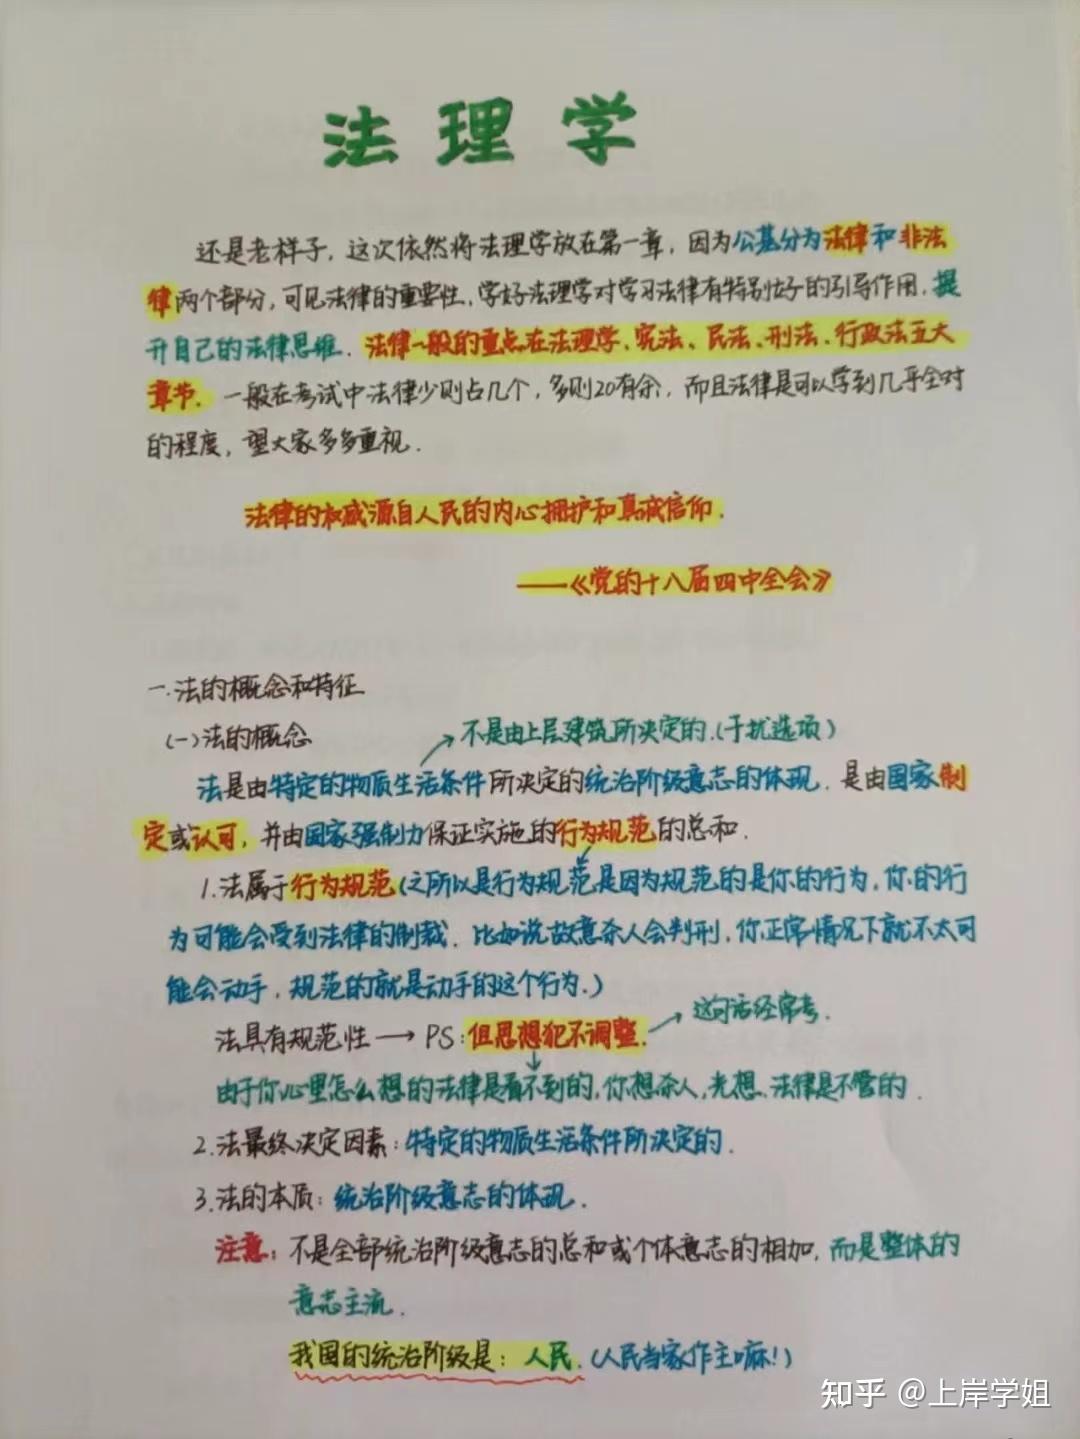 法理学
还是老样子，这次依然将法理学放在第一章，因为公基分为法律和非法
律两个部分，可见法律的重要性，学好法理学对学习法律有特别好的引导作用，提
升自己的法律思维．法律一般的重点在法理学、宪法、民法、刑法、行政法五大
章节．一般在考试中法律少则占几个，多则20有余，而且法律是可以学到几乎全对
的程度，望大家多多重视．
法律的权威源自人民的内心拥护和真诚信仰．
——《党的十八届四中全会》
一.法的概念和特征
(一)法的概念
不是由上层建筑所决定的.(干扰选项)
法是由特定的物质生活条件所决定的统治阶级意志的体现．是由国家制
定或认可，并由国家强制力保证实施的行为规范的总和．
1.法属于行为规范(之所以是行为规范是因为规范的是你的行为，你的行
为可能会受到法律的制裁．比如说故意杀人会判刑，你正常情况下就不太可
能会动手，规范的就是动手的这个行为.)
法具有规范性→PS:但思想犯不调整.
这句话经常考.
由于你心里怎么想的法律是看不到的，你想杀人，光想、法律是不管的．
2.法最终决定因素：特定的物质生活条件所决定的．
3.法的本质：统治阶级意志的体现．
注意：不是全部统治阶级意志的总和或个体意志的相加，而是整体的
意志主流．
我国的统治阶级是：人民．(人民当家作主嘛!)
知乎 @上岸学姐